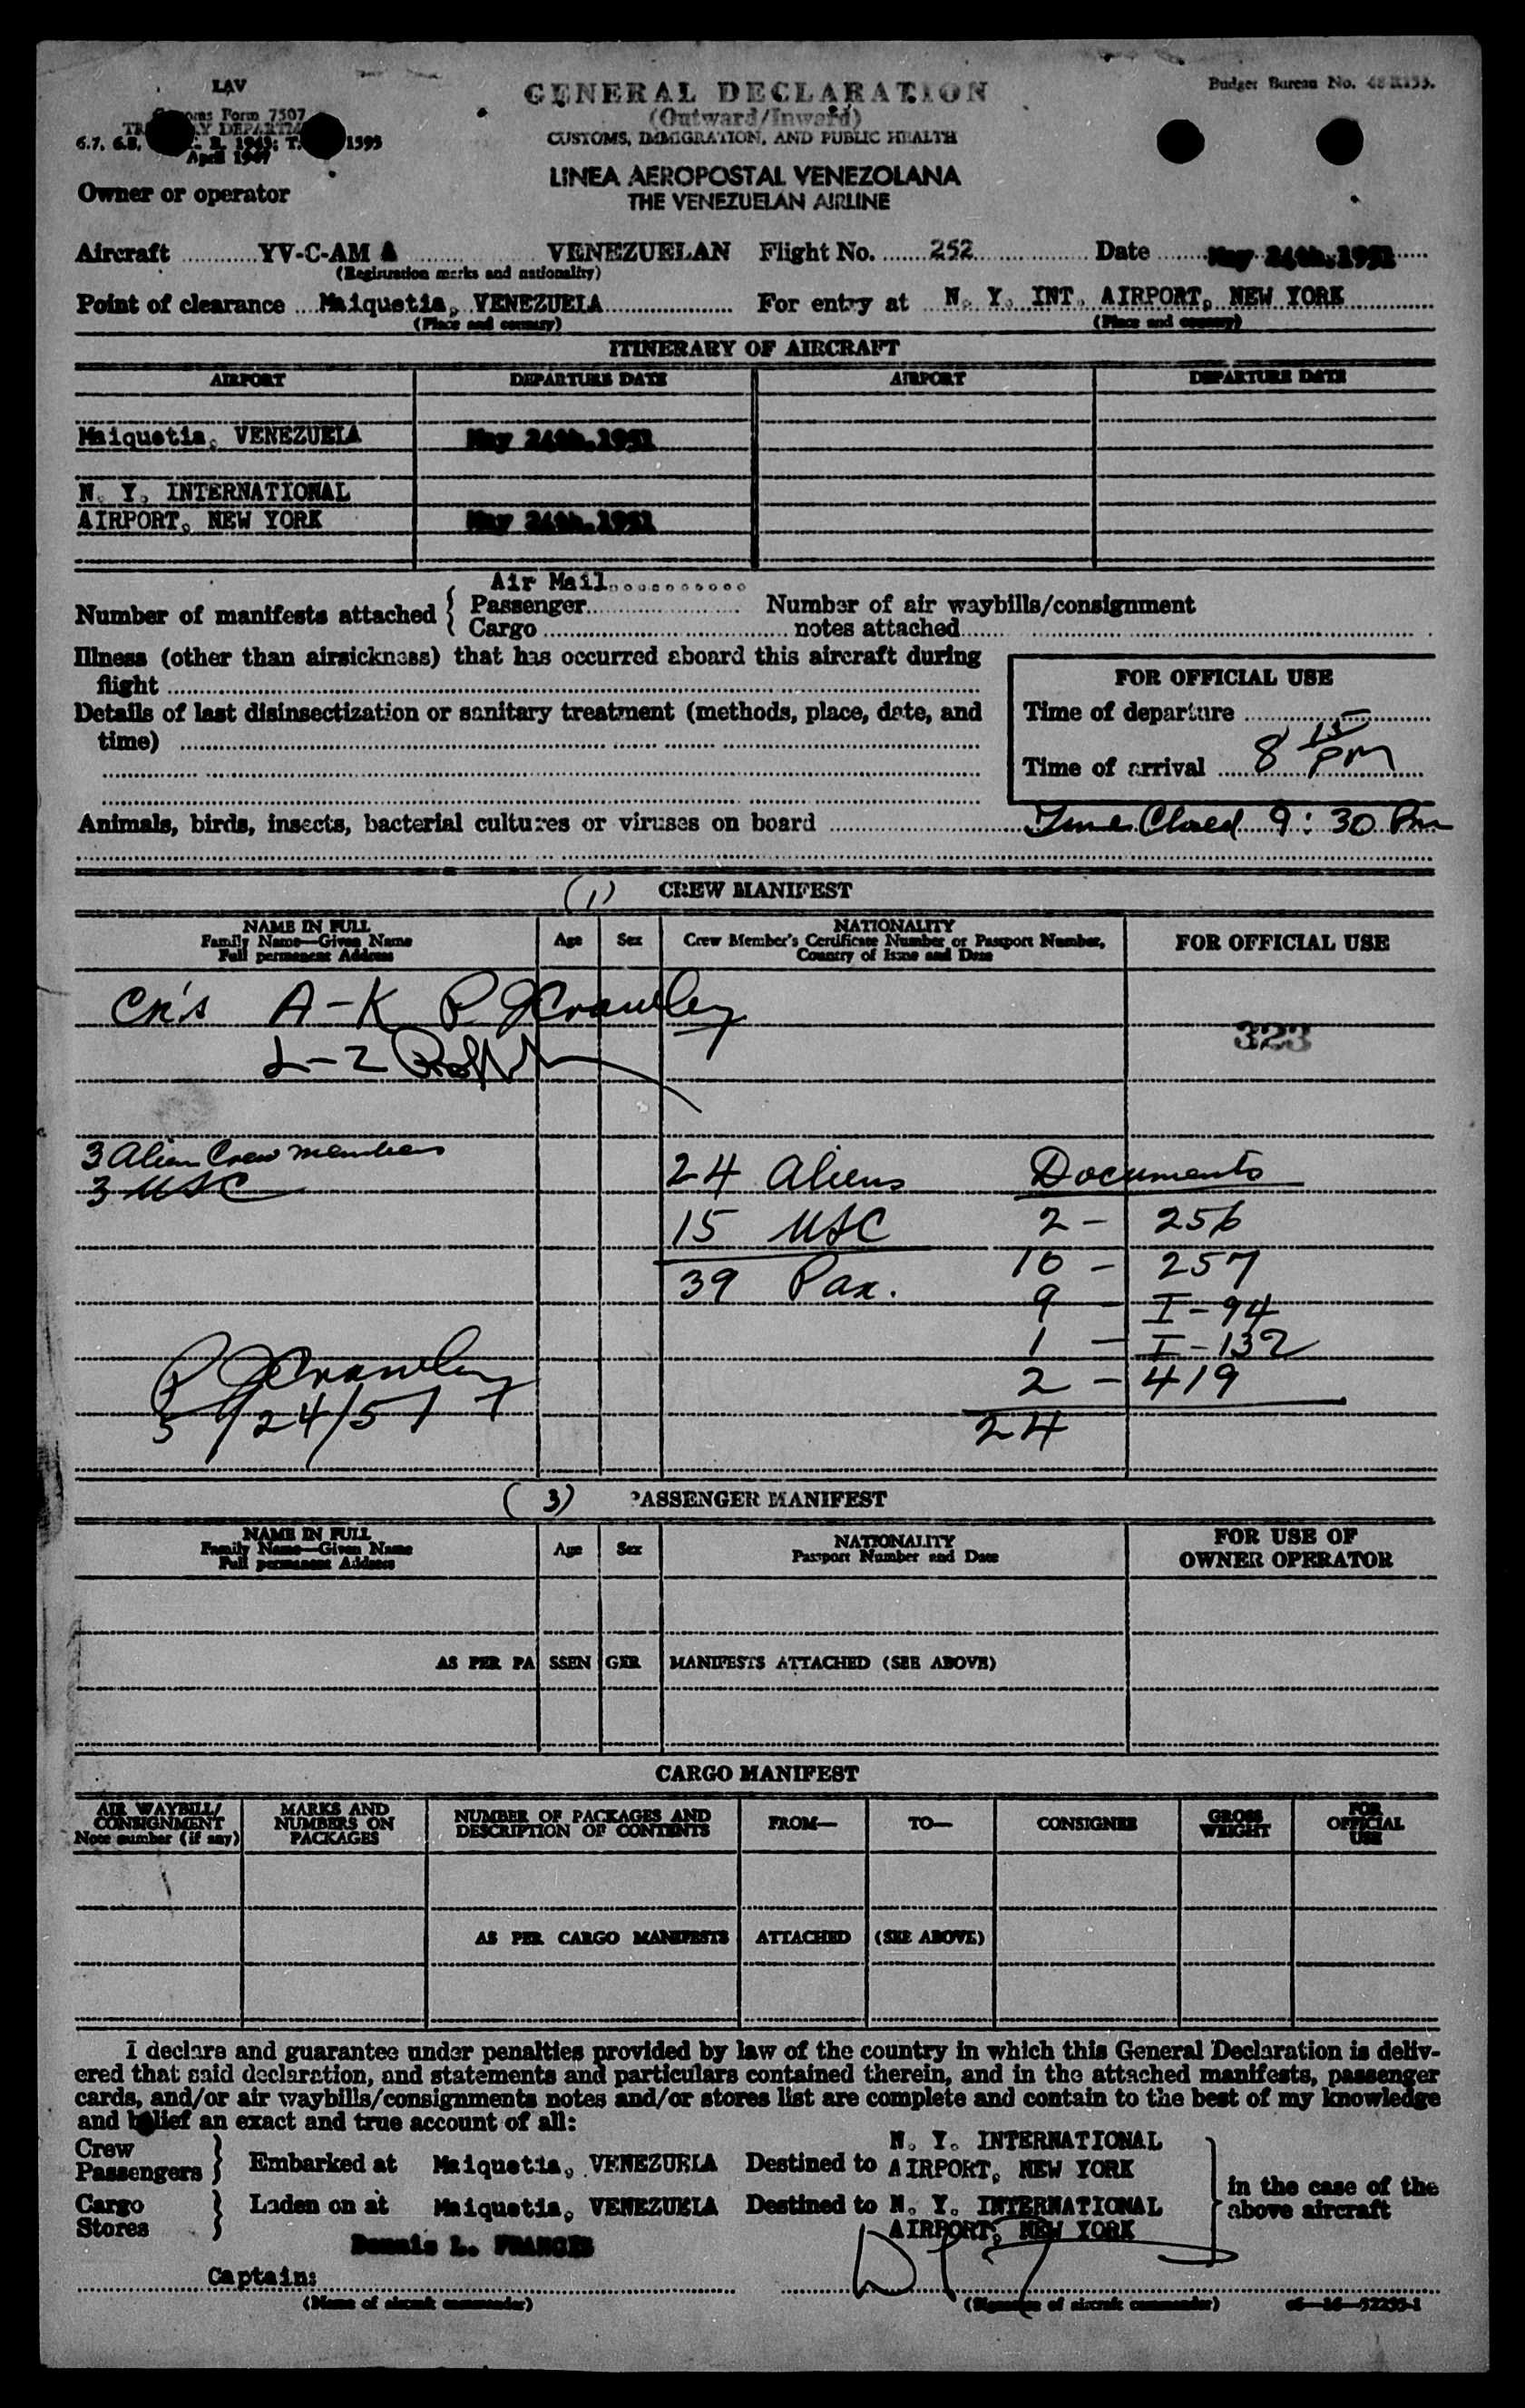 LAV
GENERAL DECLARATION
Budget Bureau No.
Customs Form 7507
(Outward/Inward)
CUSTOMS, IMMIGRATION, AND PUBLIC HEALTH
April 1947
LINEA AEROPOSTAL VENEZOLANA
Owner or operator
THE VENEZUELAN AIRLINE
Aircraft YV-C-AM A VENEZUELAN Flight No. 252 Date May 24th.1951
(Registration marks and nationality)
Point of clearance Maiquetia, VENEZUELA For entry at N. Y. INT. AIRPORT, NEW YORK
(Place and country) (Place and country)
ITINERARY OF AIRCRAFT
AIRPORT DEPARTURE DATE AIRPORT DEPARTURE DATE
Maiquetia, VENEZUELA May 24th.1951
N. Y. INTERNATIONAL
AIRPORT, NEW YORK May 24th.1951
Air Mail
Number of manifests attached { Passenger Number of air waybills/consignment
Cargo notes attached
Illness (other than airsickness) that has occurred aboard this aircraft during
flight
FOR OFFICIAL USE
Details of last disinsectization or sanitary treatment (methods, place, date, and
time)
Time of departure
Time of arrival 8 15 PM
Animals, birds, insects, bacterial cultures or viruses on board Time Closed 9:30 Pm
(1) CREW MANIFEST
NAME IN FULL
Family Name—Given Name
Full permanent Address
Age Sex
NATIONALITY
Crew Member's Certificate Number or Passport Number,
Country of Issue and Date
FOR OFFICIAL USE
A-K P J Crawley
323
L-Z
3 Alien Crew members
3 USC
24 Aliens Documents
15 USC 2 - 256
10 - 257
39 Pax.
9 - I-94
1 - I-132
P J Crawley
2 - 419
5/24/51
24
(3) PASSENGER MANIFEST
NAME IN FULL
Family Name—Given Name
Full permanent Address
Age Sex
NATIONALITY
Passport Number and Date
FOR USE OF
OWNER OPERATOR
AS PER PASSENGER MANIFESTS ATTACHED (SEE ABOVE)
CARGO MANIFEST
AIR WAYBILL/
CONSIGNMENT
Note number (if any)
MARKS AND
NUMBERS ON
PACKAGES
NUMBER OF PACKAGES AND
DESCRIPTION OF CONTENTS
FROM— TO— CONSIGNEE
GROSS
WEIGHT
FOR
OFFICIAL
USE
AS PER CARGO MANIFESTS ATTACHED (SEE ABOVE)
I declare and guarantee under penalties provided by law of the country in which this General Declaration is deliv-
ered that said declaration, and statements and particulars contained therein, and in the attached manifests, passenger
cards, and/or air waybills/consignments notes and/or stores list are complete and contain to the best of my knowledge
and belief an exact and true account of all:
Crew
Passengers } Embarked at Maiquetia, VENEZUELA Destined to N. Y. INTERNATIONAL
AIRPORT, NEW YORK
in the case of the
above aircraft
Cargo
Stores } Laden on at Maiquetia, VENEZUELA Destined to N. Y. INTERNATIONAL
AIRPORT, NEW YORK
Dennis L. FRANCIS
Captain:
(Name of aircraft commander) (Signature of aircraft commander)